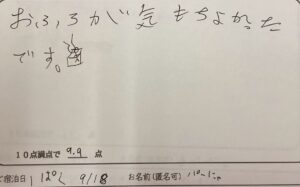 おふろが気もちよかった
です。
10点満点で 9.9 点
ご宿泊日 9/18 お名前(匿名可)